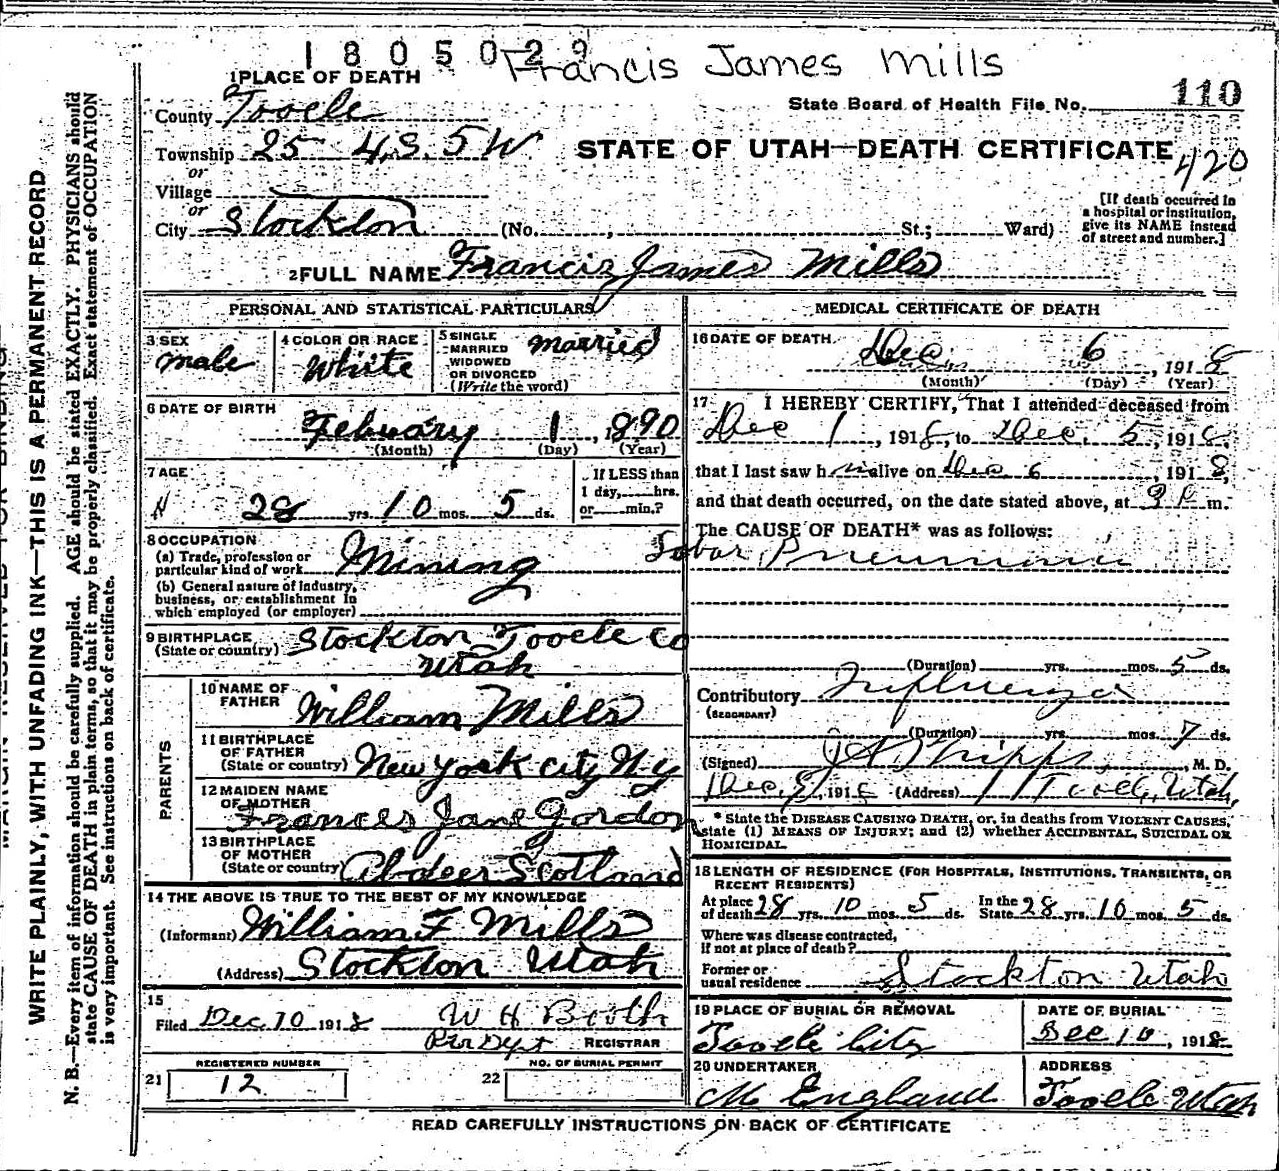 1805029 Francis James Mills
1 PLACE OF DEATH
110
State Board of Health File No.
County Tooele
Township 25 4S. 5W
STATE OF UTAH—DEATH CERTIFICATE
420
or
Village
or
City Stockton (No. , St.; Ward)
[If death occurred in a hospital or institution, give its NAME instead of street and number.]
2 FULL NAME Francis James Mills
PERSONAL AND STATISTICAL PARTICULARS
3 SEX
male
4 COLOR OR RACE
White
5 SINGLE
MARRIED
WIDOWED
OR DIVORCED
(Write the word)
married
6 DATE OF BIRTH
Febuary 1, 1890
(Month) (Day) (Year)
7 AGE
28 yrs. 10 mos. 5 ds.
If LESS than
1 day, hrs.
or min.?
8 OCCUPATION
(a) Trade, profession or
particular kind of work Mining
(b) General nature of industry,
business, or establishment in
which employed (or employer)
9 BIRTHPLACE
(State or country) Stockton Tooele Co
Utah
PARENTS
10 NAME OF
FATHER William Mills
11 BIRTHPLACE
OF FATHER
(State or country) New York City N.y
12 MAIDEN NAME
OF MOTHER
Frances Jane Gordon
13 BIRTHPLACE
OF MOTHER
(State or country) Abdeer Scotland
14 THE ABOVE IS TRUE TO THE BEST OF MY KNOWLEDGE
(Informant) William F Mills
(Address) Stockton Utah
15
Filed Dec 10 1918 W H Booth
Per Dept REGISTRAR
REGISTERED NUMBER
21 12
NO. OF BURIAL PERMIT
22
MEDICAL CERTIFICATE OF DEATH
16 DATE OF DEATH
Dec 6, 1918
(Month) (Day) (Year)
17 I HEREBY CERTIFY, That I attended deceased from
Dec 1, 1918, to Dec. 5, 1918,
that I last saw him alive on Dec 6, 1918,
and that death occurred, on the date stated above, at 9 P m.
The CAUSE OF DEATH* was as follows:
Lobar Pneumonia
(Duration) yrs. mos. 5 ds.
Contributory Influenza
(SECONDARY)
(Duration) yrs. mos. 7 ds.
(Signed) J A Phipps, M. D.
Dec. 9, 1918 (Address) Tooele, Utah,
* State the DISEASE CAUSING DEATH, or, in deaths from VIOLENT CAUSES,
state (1) MEANS OF INJURY; and (2) whether ACCIDENTAL, SUICIDAL OR
HOMICIDAL.
18 LENGTH OF RESIDENCE (FOR HOSPITALS, INSTITUTIONS, TRANSIENTS, OR
RECENT RESIDENTS)
At place of death 28 yrs. 10 mos. 5 ds. In the State 28 yrs. 10 mos. 5 ds.
Where was disease contracted,
if not at place of death?
Former or
usual residence Stockton Utah
19 PLACE OF BURIAL OR REMOVAL
Tooele City
DATE OF BURIAL
Dec 10, 1918
20 UNDERTAKER
M England
ADDRESS
Tooele Utah
READ CAREFULLY INSTRUCTIONS ON BACK OF CERTIFICATE
WRITE PLAINLY, WITH UNFADING INK—THIS IS A PERMANENT RECORD
N. B.—Every item of information should be carefully supplied. AGE should be stated EXACTLY. PHYSICIANS should
state CAUSE OF DEATH in plain terms, so that it may be properly classified. Exact statement of OCCUPATION
is very important. See instructions on back of certificate.